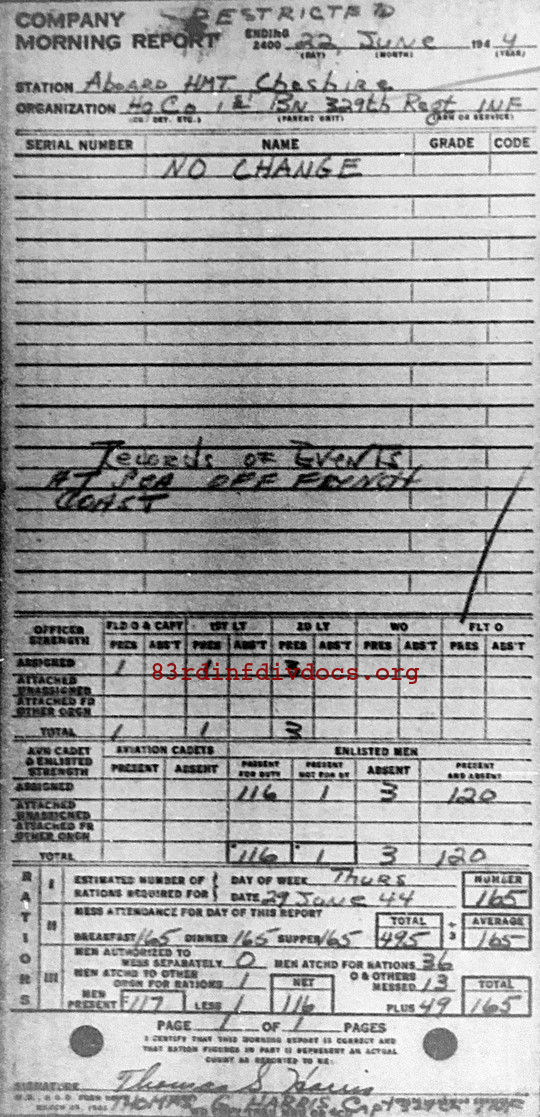 COMPANY RESTRICTED
MORNING REPORT ENDING 2400 22 June 1944
(DAY) (MONTH) (YEAR)
STATION Aboard HMT Cheshire
ORGANIZATION Hq Co 1st Bn 329th Regt INF
(CO. DET. ETC.) (PARENT UNIT) (ARM OR SERVICE)
SERIAL NUMBER NAME GRADE CODE
NO CHANGE
Records of Events
AT SEA OFF FRENCH
COAST
OFFICER STRENGTH FLD O & CAPT 1ST LT 2D LT WO FLT O
PRES ABS'T PRES ABS'T PRES ABS'T PRES ABS'T PRES ABS'T
ASSIGNED 1 1 3
83rdinfdivdocs.org
ATTACHED UNASSIGNED
ATTACHED FR OTHER ORGN
TOTAL 1 1 3
AVN CADET & ENLISTED STRENGTH AVIATION CADETS ENLISTED MEN
PRESENT ABSENT PRESENT FOR DUTY PRESENT NOT FOR DY ABSENT PRESENT AND ABSENT
ASSIGNED 116 1 3 120
ATTACHED UNASSIGNED
ATTACHED FR OTHER ORGN
TOTAL 116 1 3 120
RATIONS
I ESTIMATED NUMBER OF RATIONS REQUIRED FOR DAY OF WEEK Thurs NUMBER
DATE 29 June 44 165
II MESS ATTENDANCE FOR DAY OF THIS REPORT TOTAL ÷ 3 AVERAGE
BREAKFAST 165 DINNER 165 SUPPER 165 495 165
III MEN AUTHORIZED TO MESS SEPARATELY 0 MEN ATCHD FOR RATIONS 36
MEN ATCHD TO OTHER ORGN FOR RATIONS 1 NET O & OTHERS MESSED 13 TOTAL
MEN PRESENT 117 LESS 1 116 PLUS 49 165
PAGE 1 OF 1 PAGES
I CERTIFY THAT THIS MORNING REPORT IS CORRECT AND
THAT RATION FIGURES IN PART II REPRESENT AN ACTUAL
COUNT AS REPORTED TO ME:
SIGNATURE Thomas G Harris
THOMAS G HARRIS